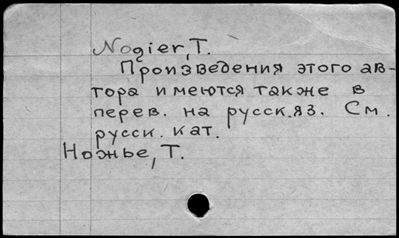 Nogier, T.
Произведения этого ав-
тора имеются также в
перев. на русск. яз. См.
русск. кат.
Ножье, Т.